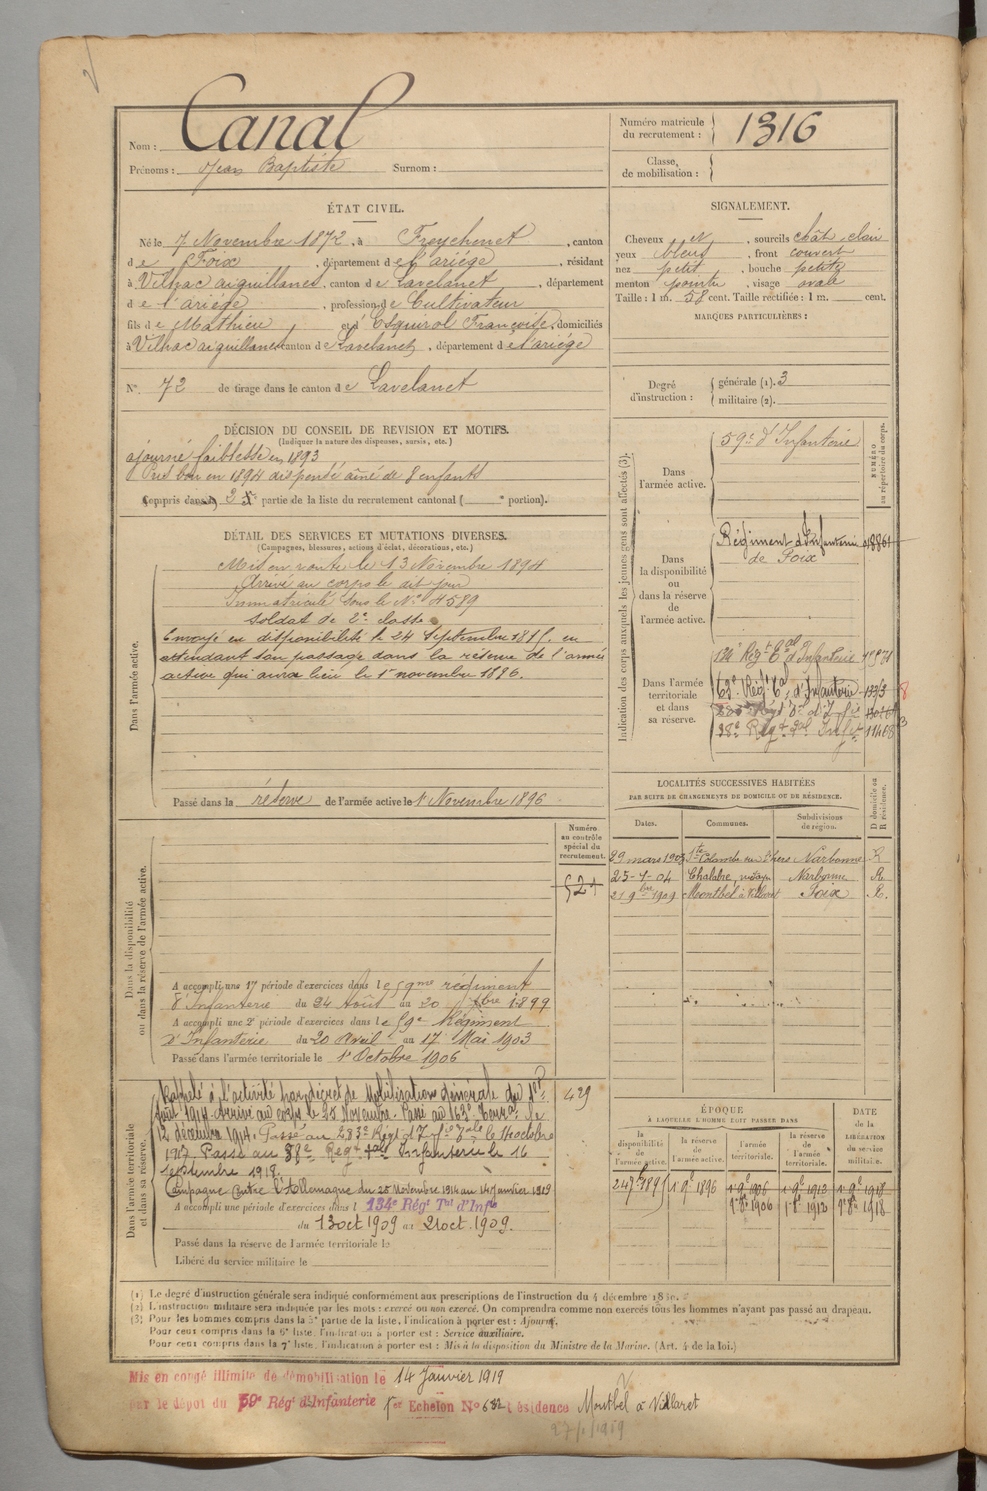 Nom : Canal
Prénoms : Jean Baptiste Surnom :
Numéro matricule
du recrutement : 1316
Classe
de mobilisation :
ÉTAT CIVIL.
Né le 7 Novembre 1872, à Freychenet, canton
de Foix, département de l'ariège, résidant
à Vilhac aiguillanes, canton de Lavelanet, département
de l'ariège, profession de Cultivateur
fils de Mathieu et d'Esquirol Françoise, domiciliés
à Vilhac aiguillanes canton de Lavelanet, département de l'ariège
N° 72 de tirage dans le canton de Lavelanet
SIGNALEMENT.
Cheveux et, sourcils chât. clair
yeux bleus, front couvert
nez petit, bouche petite
menton pointu, visage ovale
Taille : 1 m. 58 cent. Taille rectifiée : 1 m. cent.
MARQUES PARTICULIÈRES :
Degré
d'instruction :
générale (1). 3
militaire (2).
DÉCISION DU CONSEIL DE REVISION ET MOTIFS.
(Indiquer la nature des dispenses, sursis, etc.)
ajourné faiblesse en 1893
Pris bon en 1894 dispensé aîné de 8 enfants
Compris dans la 2e partie de la liste du recrutement cantonal ( e portion).
DÉTAIL DES SERVICES ET MUTATIONS DIVERSES.
(Campagnes, blessures, actions d'éclat, décorations, etc.)
Dans l'armée active.
Mis en route le 13 Novembre 1894
Arrivé au corps le dit jour
Immatriculé sous le N° 4589
Soldat de 2e classe
Envoyé en disponibilité le 24 Septembre 1895. en
attendant son passage dans la réserve de l'armée
active qui aura lieu le 1er novembre 1896.
Passé dans la réserve de l'armée active le 1er Novembre 1896
Indication des corps auxquels les jeunes gens sont affectés (3).
NUMÉRO
au répertoire du corps.
Dans
l'armée active.
59e d'Infanterie
Dans
la disponibilité
ou
dans la réserve
de
l'armée active.
Régiment d'Infanterie
de Foix
Dans l'armée
territoriale
et dans
sa réserve.
134e Régt Eal d'Infanterie
LOCALITÉS SUCCESSIVES HABITÉES
PAR SUITE DE CHANGEMENTS DE DOMICILE OU DE RÉSIDENCE.
Dates. Communes. Subdivisions de région. D domicile ou R résidence.
29 mars 1903 Ste Colombe sur l'hers Narbonne R
25-7-04 Chalabre Narbonne R
21 9bre 1909 Montbel à Villaret Foix R.
Dans la disponibilité
ou dans la réserve de l'armée active.
Numéro
au contrôle
spécial du
recrutement.
521
A accompli une 1re période d'exercices dans le 59me régiment
d'Infanterie du 24 Août au 20 7bre 1899
A accompli une 2e période d'exercices dans le 59e Régiment
d'Infanterie du 20 Avril au 17 Mai 1903
Passé dans l'armée territoriale le 1er Octobre 1906
Dans l'armée territoriale
et dans sa réserve.
429
Rappelé à l'activité par décret de Mobilisation Générale du 1er
Août 1914. Arrivé au corps le 25 Novembre. Passé au 163e Terral le
12 décembre 1914. Passé au 283e Régt d'Inf le 14 octobre
1917. Passé au 38e Regt tal Infanterie le 16
Septembre 1918.
Campagne contre l'Allemagne du 25 Novembre 1914 au 14 Janvier 1919
A accompli une période d'exercices dans l 134e Régt Tal d'Infie
du 13 oct 1909 au 21 oct. 1909.
Passé dans la réserve de l'armée territoriale le
Libéré du service militaire le
ÉPOQUE
À LAQUELLE L'HOMME DOIT PASSER DANS
la disponibilité de l'armée active. la réserve de l'armée active. l'armée territoriale. la réserve de l'armée territoriale. DATE de la LIBÉRATION du service militaire.
24 7bre 1895 1er 9bre 1896 1er 9bre 1906 1er 9bre 1912 1er 9bre 1918
1er 8bre 1906 1er 8bre 1912 1er 8bre 1918
(1) Le degré d'instruction générale sera indiqué conformément aux prescriptions de l'instruction du 4 décembre
(2) L'instruction militaire sera indiquée par les mots : exercé ou non exercé. On comprendra comme non exercés tous les hommes n'ayant pas passé au drapeau.
(3) Pour les hommes compris dans la 5e partie de la liste, l'indication à porter est : Ajourné.
Pour ceux compris dans la 6e liste, l'indication à porter est : Service auxiliaire.
Pour ceux compris dans la 7e liste, l'indication à porter est : Mis à la disposition du Ministre de la Marine. (Art. 4 de la loi.)
Mis en congé illimité de démobilisation le 14 Janvier 1919
par le dépôt du 59e Régt d'Infanterie 1er Echelon N° 682 résidence Montbel à Villaret